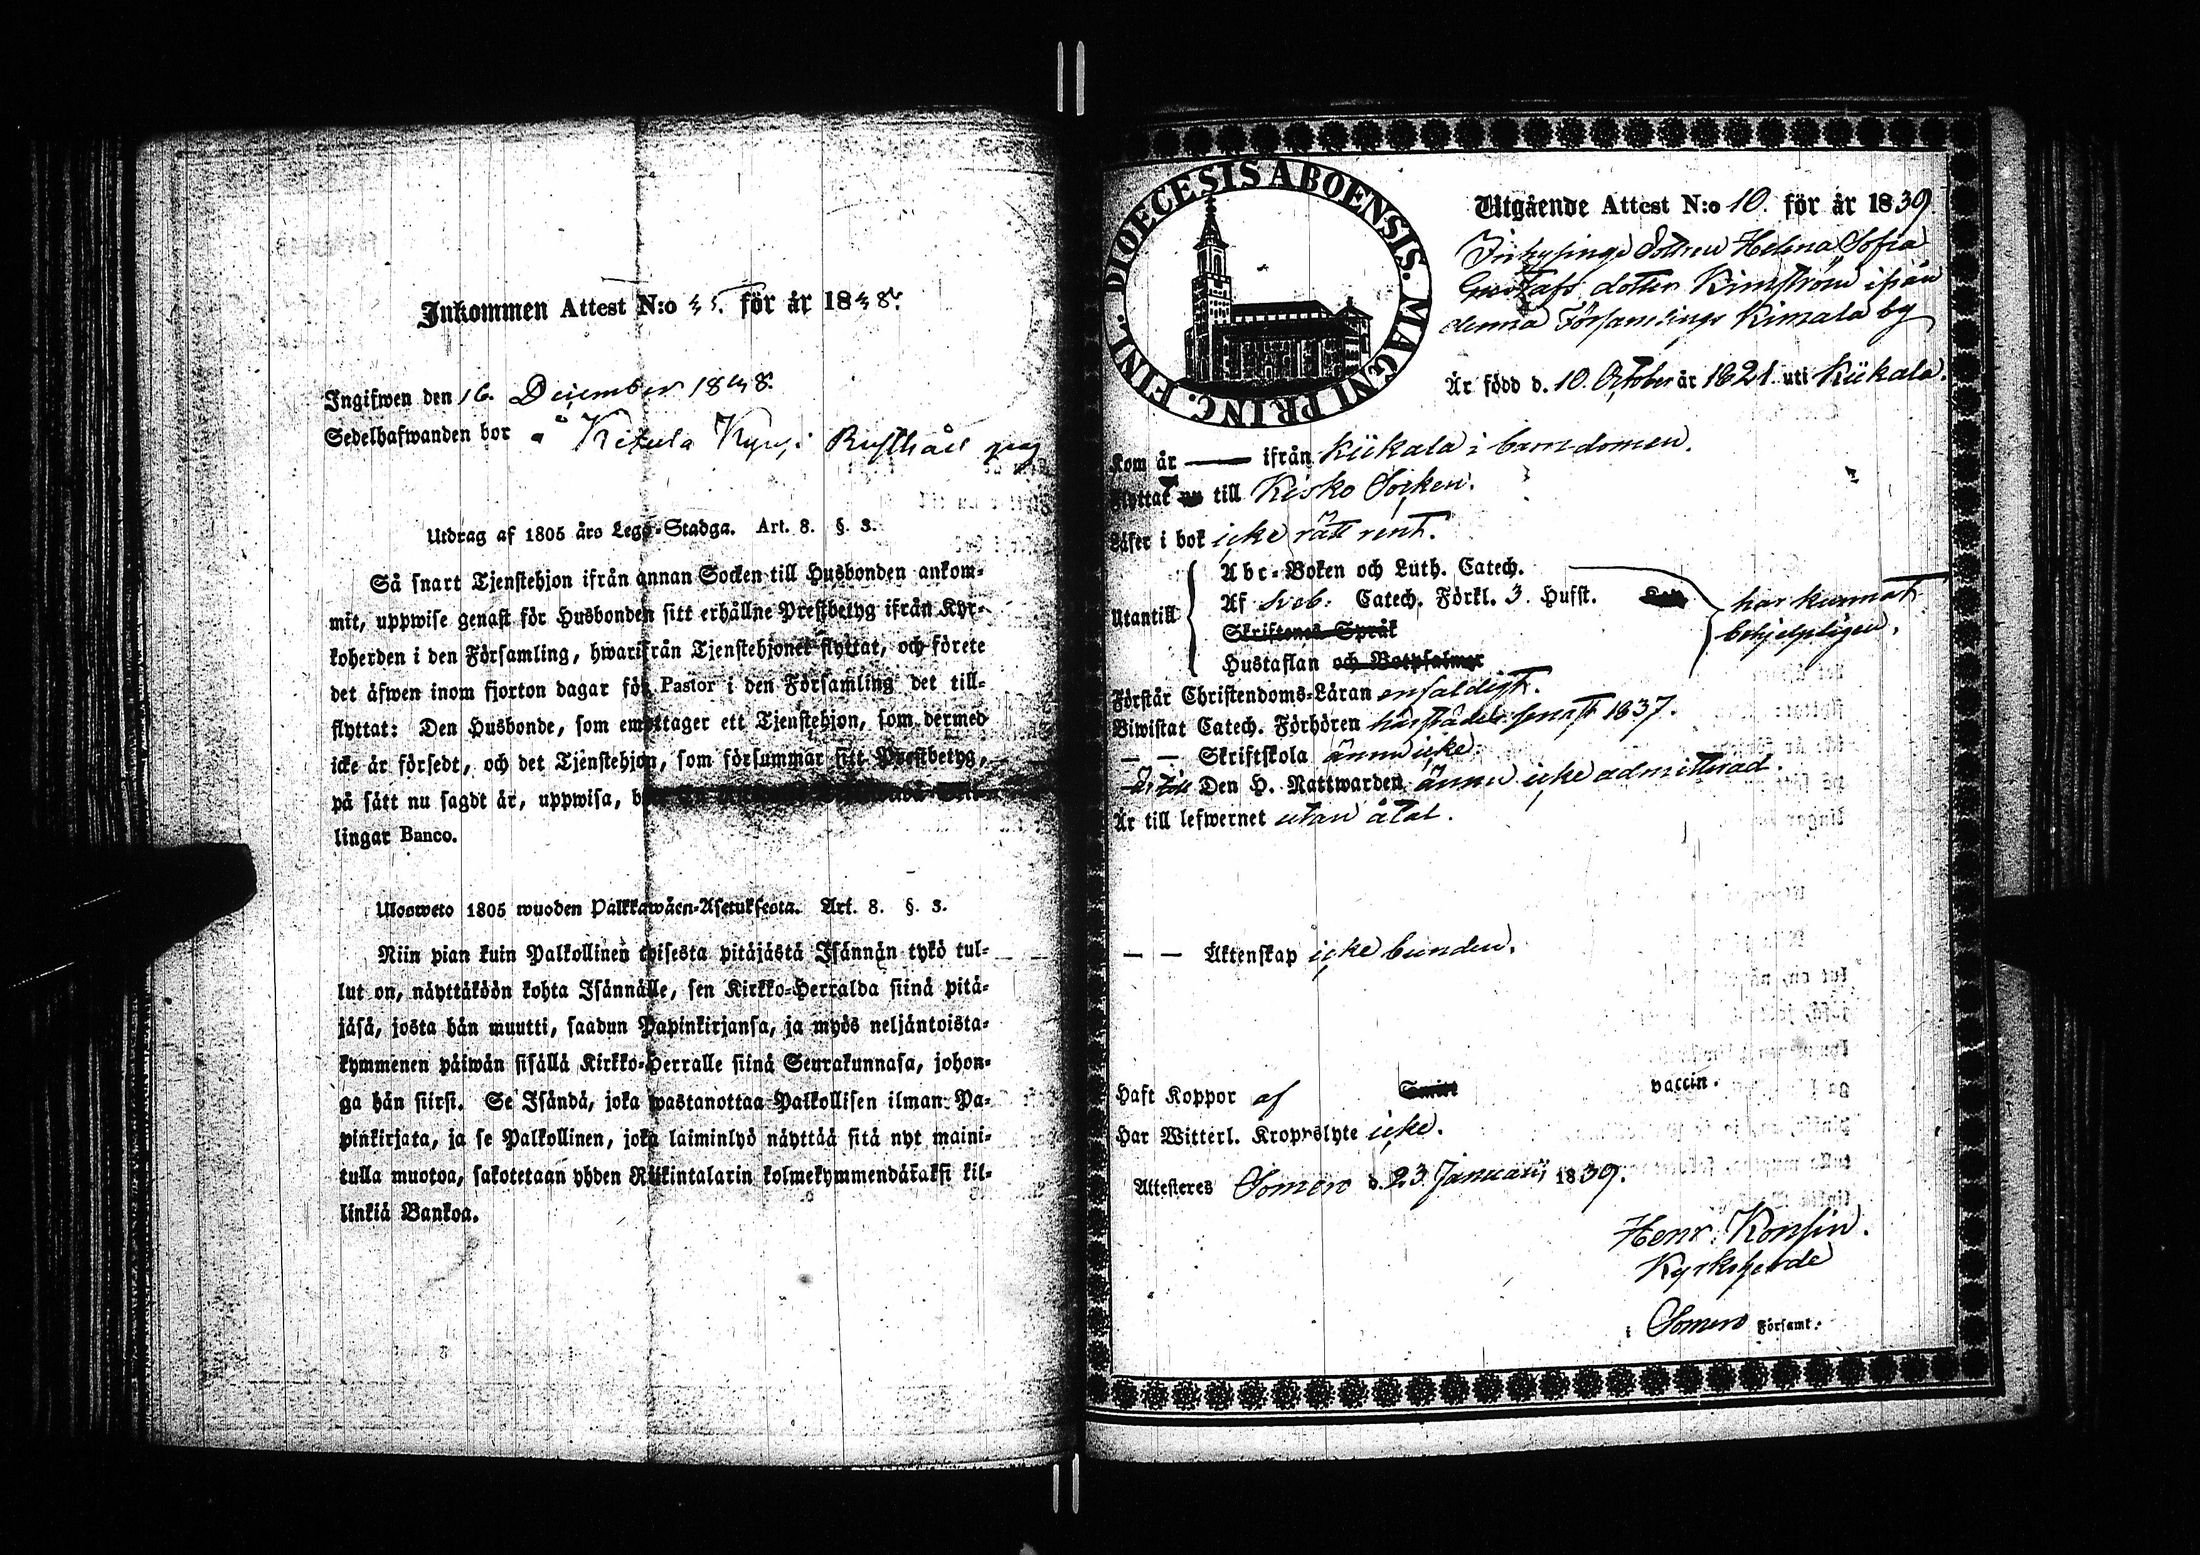 Inkommen Attest N:o för år 18
Ingifwen den 16. December 18
Sedelhafwanden bor å
Utdrag af 1805 års Lego-Stadga. Art. 8. §. 3.
Så snart Tjenstehjon ifrån annan Socken till Husbonden ankom-
mit, uppwise genast för Husbonden sitt erhållne Prestbetyg ifrån Kyr-
koherden i den Församling, hwarifrån Tjenstehjonet flyttat, och förete
det äfwen inom fjorton dagar för Pastor i den Församling det till-
flyttat: Den Husbonde, som emottager ett Tjenstehjon, som dermed
icke är försedt, och det Tjenstehjon, som försummar sitt Prestbetyg,
på sätt nu sagdt är, uppwisa,
lingar Banco.
Ulosweto 1805 wuoden Palkkawäen-Asetuksesta. Art. 8. §. 3.
Niin pian kuin Palkollinen toisesta pitäjästä Isännän tykö tul-
lut on, näyttäköön kohta Isännälle, sen Kirkko-Herralda siinä pitä-
jäsä, josta hän muutti, saadun Papinkirjansa, ja myös neljäntoista-
kymmenen päiwän sisällä Kirkko-Herralle siinä Seurakunnasa, johon-
ga hän siirsi. Se Isändä, joka wastanottaa Palkollisen ilman Pa-
pinkirjata, ja se Palkollinen, joka laiminlyö näyttää sitä nyt maini-
tulla muotoa, sakotetaan yhden Riikintalarin kolmekymmendäkaksi kil-
linkiä Bankoa.
DIOECESIS ABOENSIS. MAGNI PRINC. FINL.
Utgående Attest N:o 10. för år 1839
Inhysinge Dottren Helena Sofia
Gustafs dotter Kimström ifrån
denna Församlings Kimala by
Är född d. 10. October år 1821 uti Kiikala.
Kom år — ifrån Kiikala i barndomen.
Flyttat nu till Kisko Socken.
Läser i bok icke rätt rent.
Utantill
Abc-Boken och Luth. Catech.
Af Sveb. Catech. Förkl. 3. Hufst.
Skriftenes Språk
Hustaflan och Botpsalmer
har kunnat
behjelpligen.
Förstår Christendoms-Läran enfaldigt.
Biwistat Catech. Förhören härstädes senast 1837.
— — Skriftskola ännu icke.
Är till Den H. Nattwarden ännu icke admitterad.
Är till lefwernet utan åtal.
— — Äktenskap icke bunden.
Haft Koppor af Smitt vaccin.
Har Witterl. Kroppslyte icke.
Attesteres Somero d. 23. Januarii 1839.
Henr. Konsin.
Kyrkoherde
i Somero Församl.